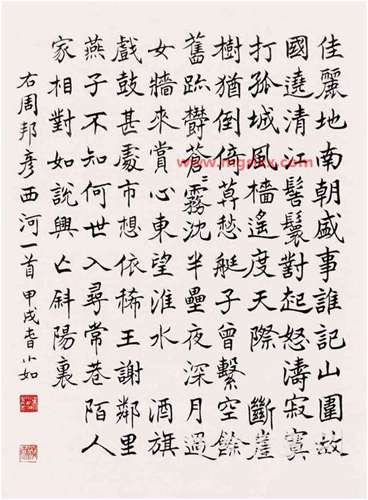 佳麗地南朝盛事誰記山圍故
國遶清江髻鬟對起怒濤寂寞
打孤城風檣遙度天際 斷崖
樹猶倒倚莫愁艇子曾繫空餘
舊跡欝蒼〻霧沈半壘夜深月過
女牆來賞心東望淮水 酒旗
戲鼓甚處市想依稀王謝鄰里
燕子不知何世入尋常巷陌人
家相對如說興亡斜陽裏
右周邦彥西河一首 甲戌春小如